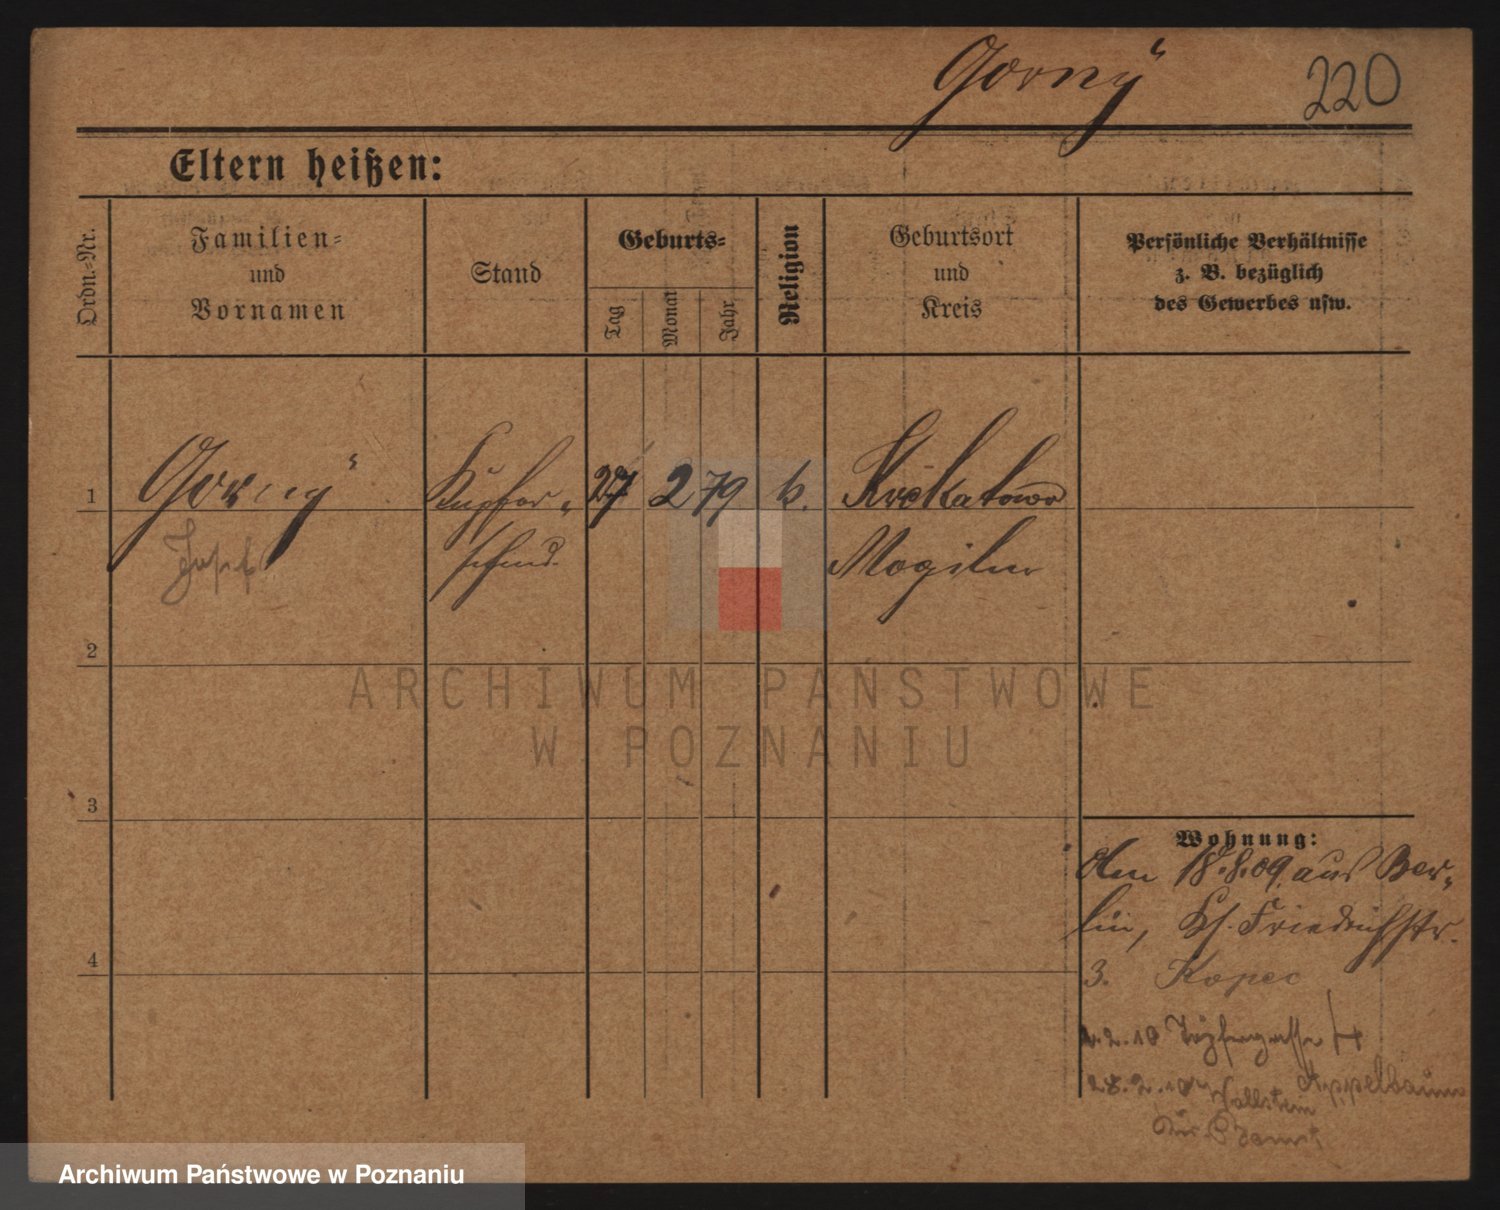 Gorny
220
Eltern heißen:
Ordn.-Nr.
Familien-
und
Vornamen
Stand
Geburts-
Tag
Monat
Jahr
Religion
Geburtsort
und
Kreis
Persönliche Verhältnisse
z. B. bezüglich
des Gewerbes usw.
1
Gorny
Josef
Kupfer-
schmd.
27
2
79
k.
Krekatowo
Mogilno
2
3
4
Wohnung:
Am 18.8.09. aus Ber-
lin, Kl. Friedrichstr.
3. Kopec
2.2.10 Töpfergasse
Appelbaum
28.2.10 Wollstein
ARCHIWUM PAŃSTWOWE
W POZNANIU
Archiwum Państwowe w Poznaniu